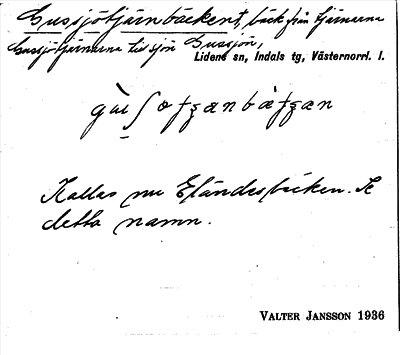 Gussjötjärnbäcken, bäck från tjärnarna
Gussjötjärnarna till sjön Gussjön,
Lidens sn, Indals tg, Västernorrl. l.
Kallas nu Eländesbäcken. Se
detta namn.
VALTER JANSSON 1936